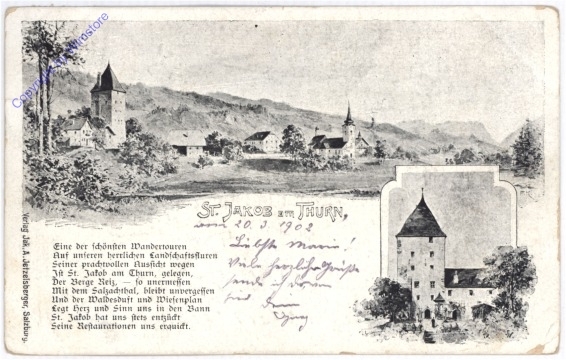 St. Jakob am Thurn,
vom 20.3.1902
Liebste Mama!
Viele herzliche Grüße
Eine der schönsten Wandertouren
Auf unseren herrlichen Landschaftsfluren
Seiner prachtvollen Aussicht wegen
Ist St. Jakob am Thurn, gelegen,
Der Berge Reiz, — so unermessen
Mit dem Salzachthal, bleibt unvergessen
Und der Waldesduft und Wiesenplan
Legt Herz und Sinn uns in den Bann
St. Jakob hat uns stets entzückt
Seine Restaurationen uns erquickt.
Verlag Jak. A. Jetzelsberger, Salzburg.